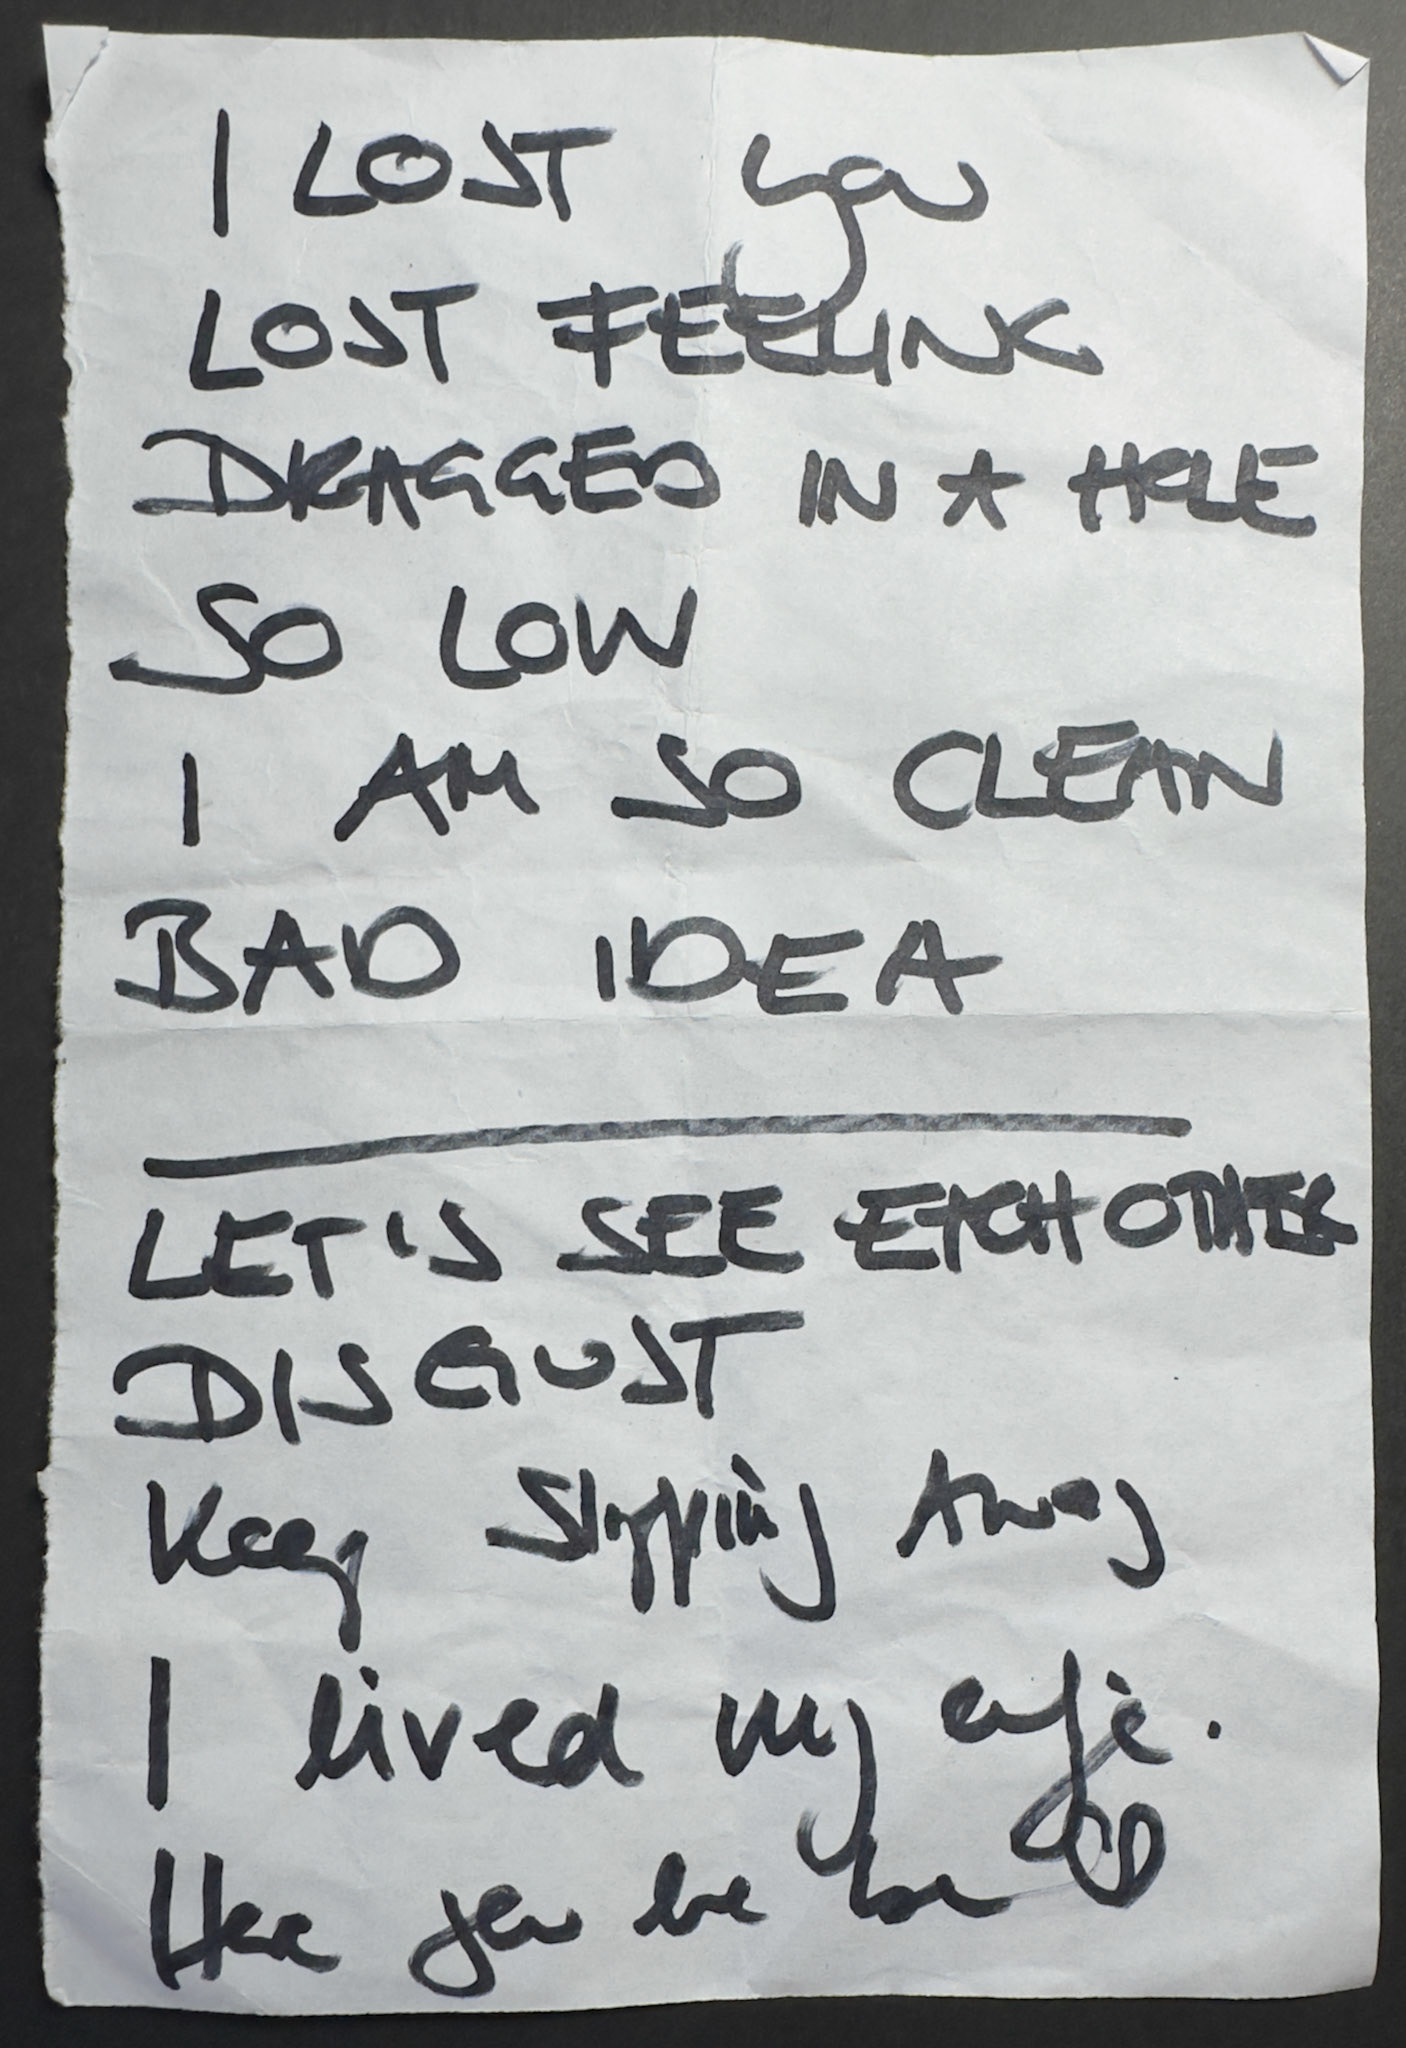 I LOST you
LOST FEELING
DRAGGED IN A HOLE
SO LOW
I AM SO CLEAN
BAD IDEA
LET'S SEE EACH OTHER
DISGUST
Keep Slipping Away
I lived my
you be